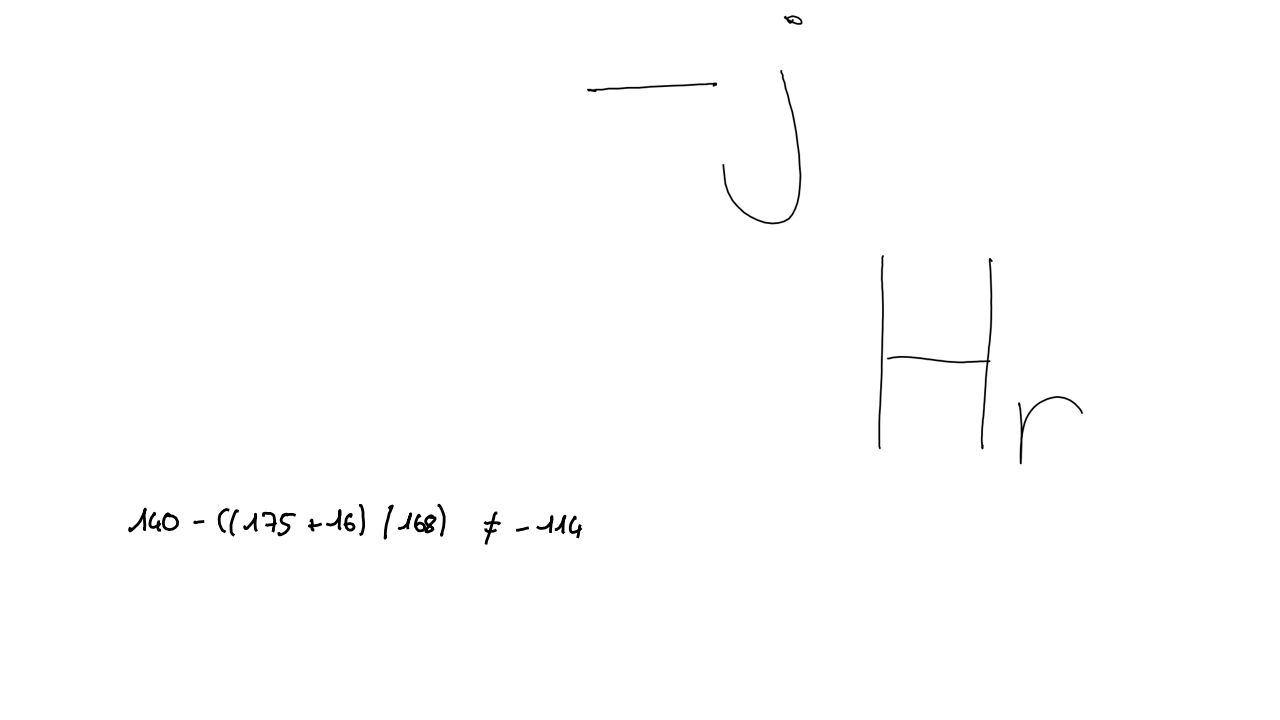 - j
H r
140 - ((175 + 16) / 168) ≠ - 114